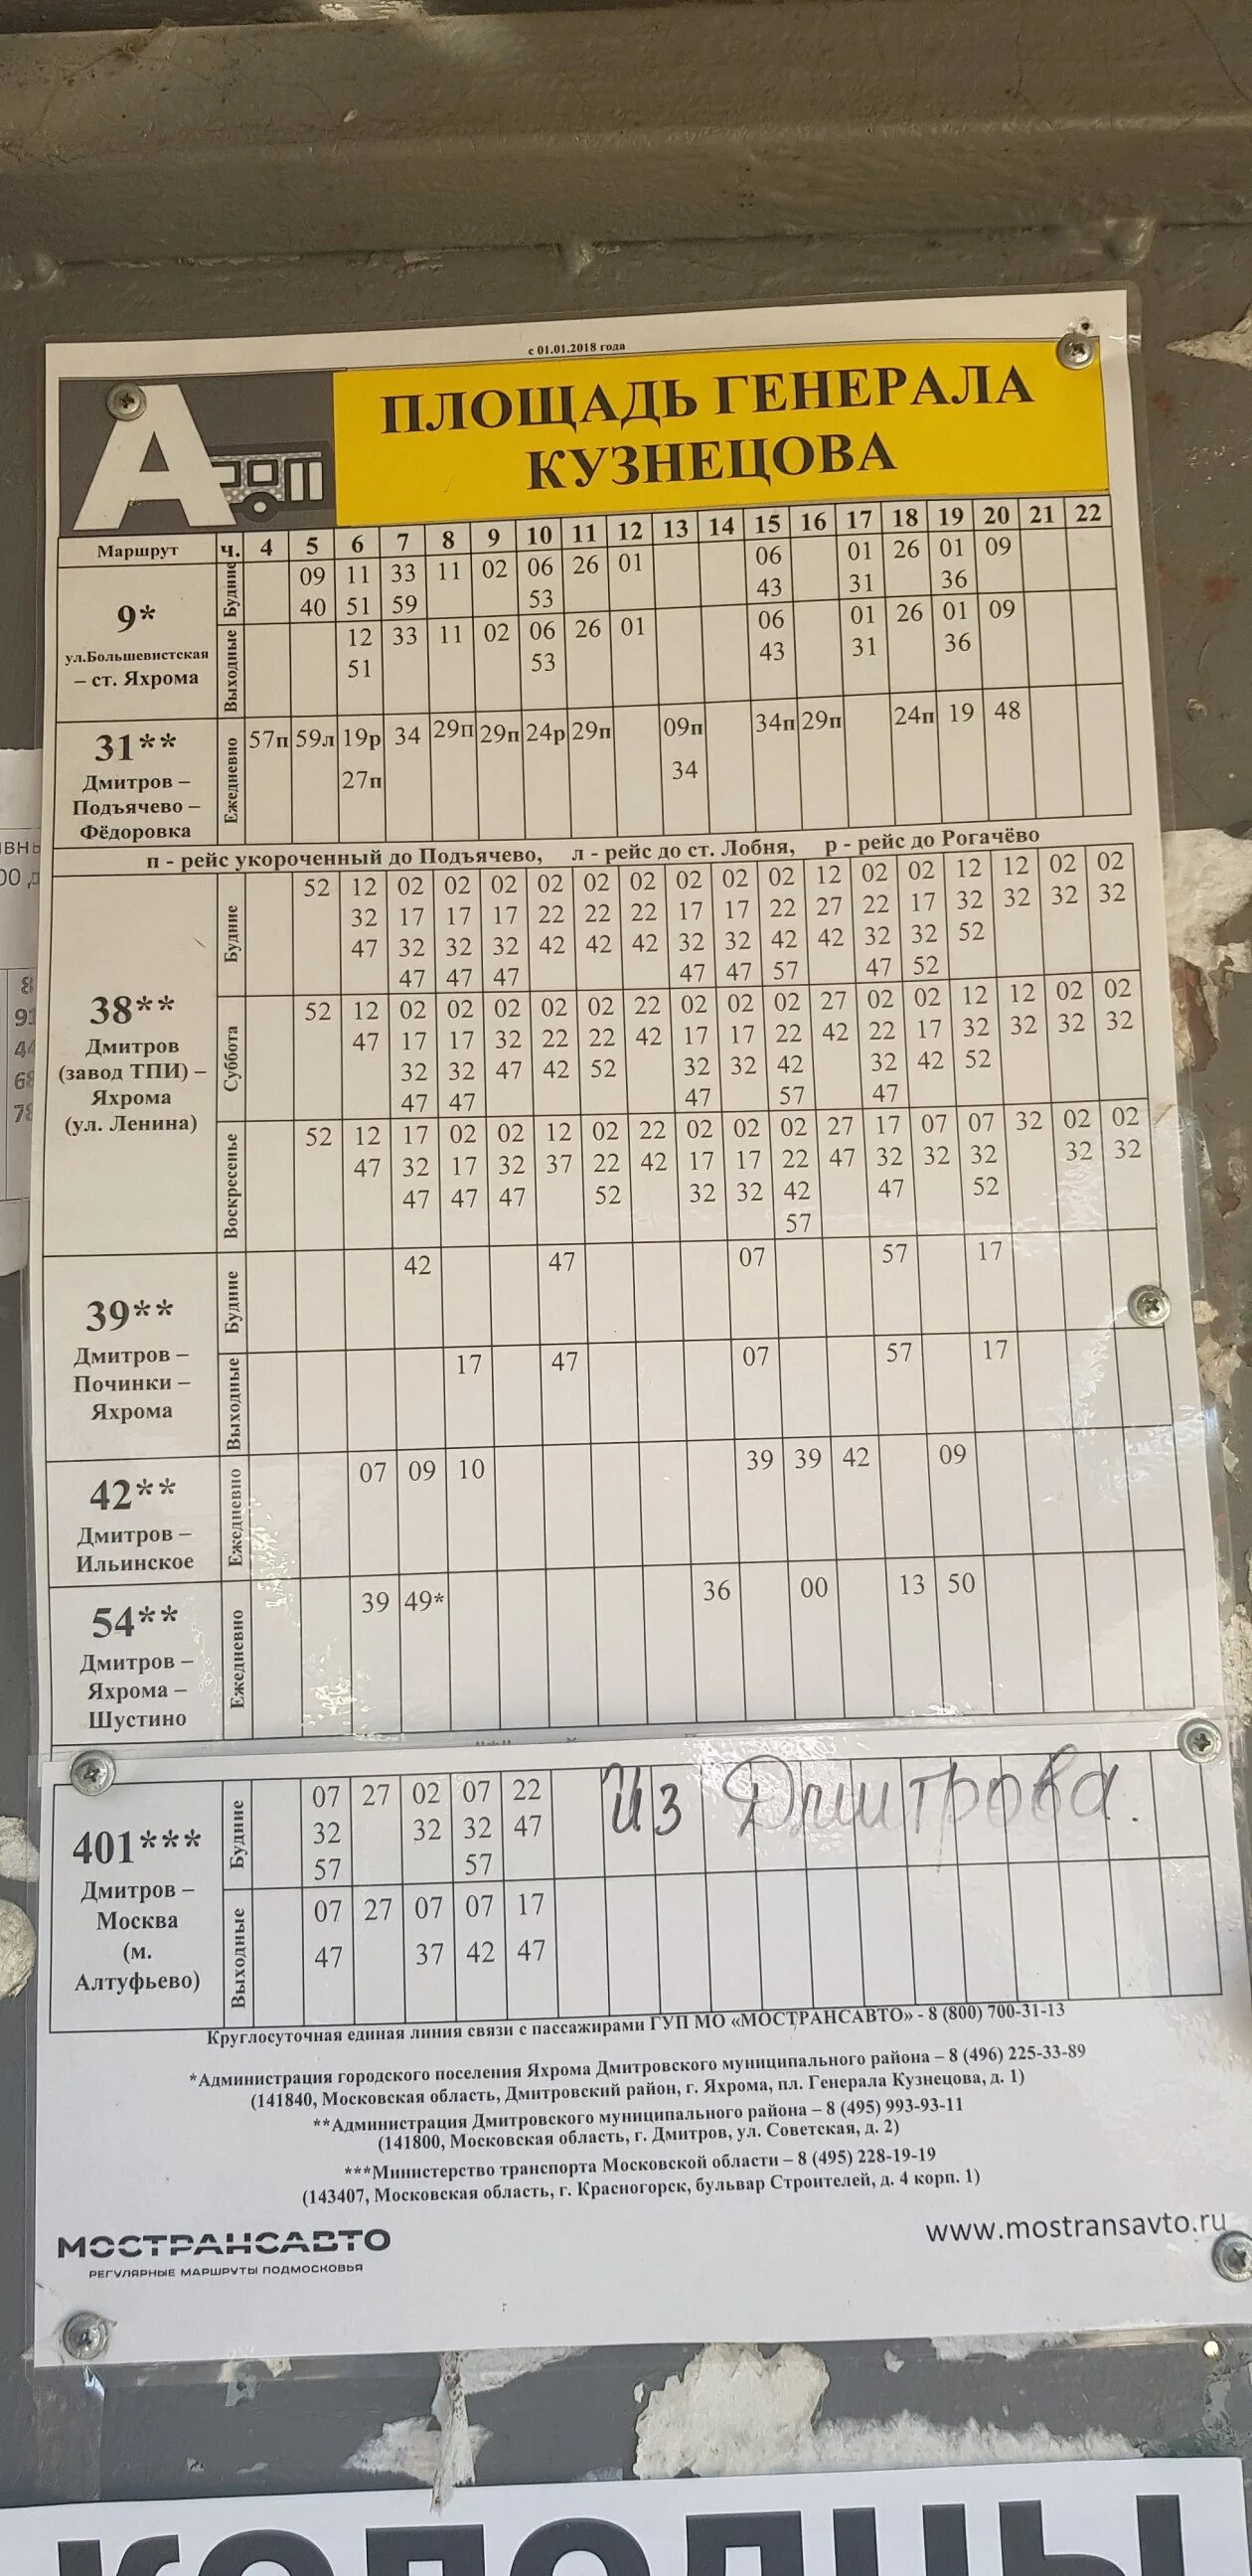 с 01.01.2018 года
А
ПЛОЩАДЬ ГЕНЕРАЛА
КУЗНЕЦОВА
Маршрут ч. 4 5 6 7 8 9 10 11 12 13 14 15 16 17 18 19 20 21 22
9*
ул.Большевистская
– ст. Яхрома
Будние
09 11 33 11 02 06 26 01 06 01 26 01 09
40 51 59 53 43 31 36
Выходные
12 33 11 02 06 26 01 06 01 26 01 09
51 53 43 31 36
31**
Дмитров –
Подъячево –
Фёдоровка
Ежедневно
57п 59л 19р 34 29п 29п 24р 29п 09п 34п 29п 24п 19 48
27п 34
п - рейс укороченный до Подъячево, л - рейс до ст. Лобня, р - рейс до Рогачёво
38**
Дмитров
(завод ТПИ) –
Яхрома
(ул. Ленина)
Будние
52 12 02 02 02 02 02 02 02 02 02 12 02 02 12 12 02 02
32 17 17 17 22 22 22 17 17 22 27 22 17 32 32 32 32
47 32 32 32 42 42 42 32 32 42 42 32 32 52
47 47 47 47 47 57 47 52
Суббота
52 12 02 02 02 02 02 22 02 02 02 27 02 02 12 12 02 02
47 17 17 32 22 22 42 17 17 22 42 22 17 32 32 32 32
32 32 47 42 52 32 32 42 32 42 52
47 47 47 57 47
Воскресенье
52 12 17 02 02 12 02 22 02 02 02 27 17 07 07 32 02 02
47 32 17 32 37 22 42 17 17 22 47 32 32 32 32 32
47 47 47 52 32 32 42 47 52
57
39**
Дмитров –
Починки –
Яхрома
Будние
42 47 07 57 17
Выходные
17 47 07 57 17
42**
Дмитров –
Ильинское
Ежедневно
07 09 10 39 39 42 09
54**
Дмитров –
Яхрома –
Шустино
Ежедневно
39 49* 36 00 13 50
401***
Дмитров –
Москва
(м.
Алтуфьево)
Будние
07 27 02 07 22 Из Дмитрова.
32 32 32 47
57 57
Выходные
07 27 07 07 17
47 37 42 47
Круглосуточная единая линия связи с пассажирами ГУП МО «МОСТРАНСАВТО» - 8 (800) 700-31-13
*Администрация городского поселения Яхрома Дмитровского муниципального района – 8 (496) 225-33-89
(141840, Московская область, Дмитровский район, г. Яхрома, пл. Генерала Кузнецова, д. 1)
**Администрация Дмитровского муниципального района – 8 (495) 993-93-11
(141800, Московская область, г. Дмитров, ул. Советская, д. 2)
***Министерство транспорта Московской области – 8 (495) 228-19-19
(143407, Московская область, г. Красногорск, бульвар Строителей, д. 4 корп. 1)
МОСТРАНСАВТО
РЕГУЛЯРНЫЕ МАРШРУТЫ ПОДМОСКОВЬЯ
www.mostransavto.ru
КОЛОДЦЫ